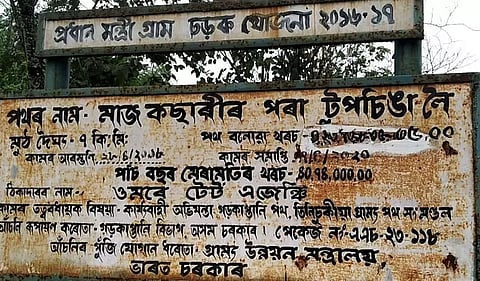 প্ৰধান মন্ত্ৰী গ্ৰাম চড়ক যোজনা ২০১৬-১৭
পথৰ নাম- মাজ কছাৰীৰ পৰা টুপচিঙা লৈ
মুঠ দৈৰ্ঘ্য- ৭ কি: মি: পথ বনোৱা খৰচ-
কামৰ আৰম্ভনি- কামৰ সমাপ্তি
পাচঁ বছৰ মেৰামতিৰ খৰচ- ৪০,৭৪,000,00
ঠিকাদাৰৰ নাম- ওমৰে টেট এজেঞ্চি
কামৰ তত্বাবধায়ক বিষয়া- কাৰ্যবাহী অভিযন্তা গড়কাপ্তানি পথ, তিনিচুকীয়া গ্ৰাম্য পথ সং মণ্ডল
আচনি ৰূপায়ন কৰোতা- গড়কাপ্তানি বিভাগ, অসম চৰকাৰ। (পেকেজ নং- এএচ-২৩-১১৮
আচঁনিৰ পুঁজি যোগান ধৰোতা- গ্ৰাম্য উন্নয়ন মন্ত্ৰালয়,
ভাৰত চৰকাৰ